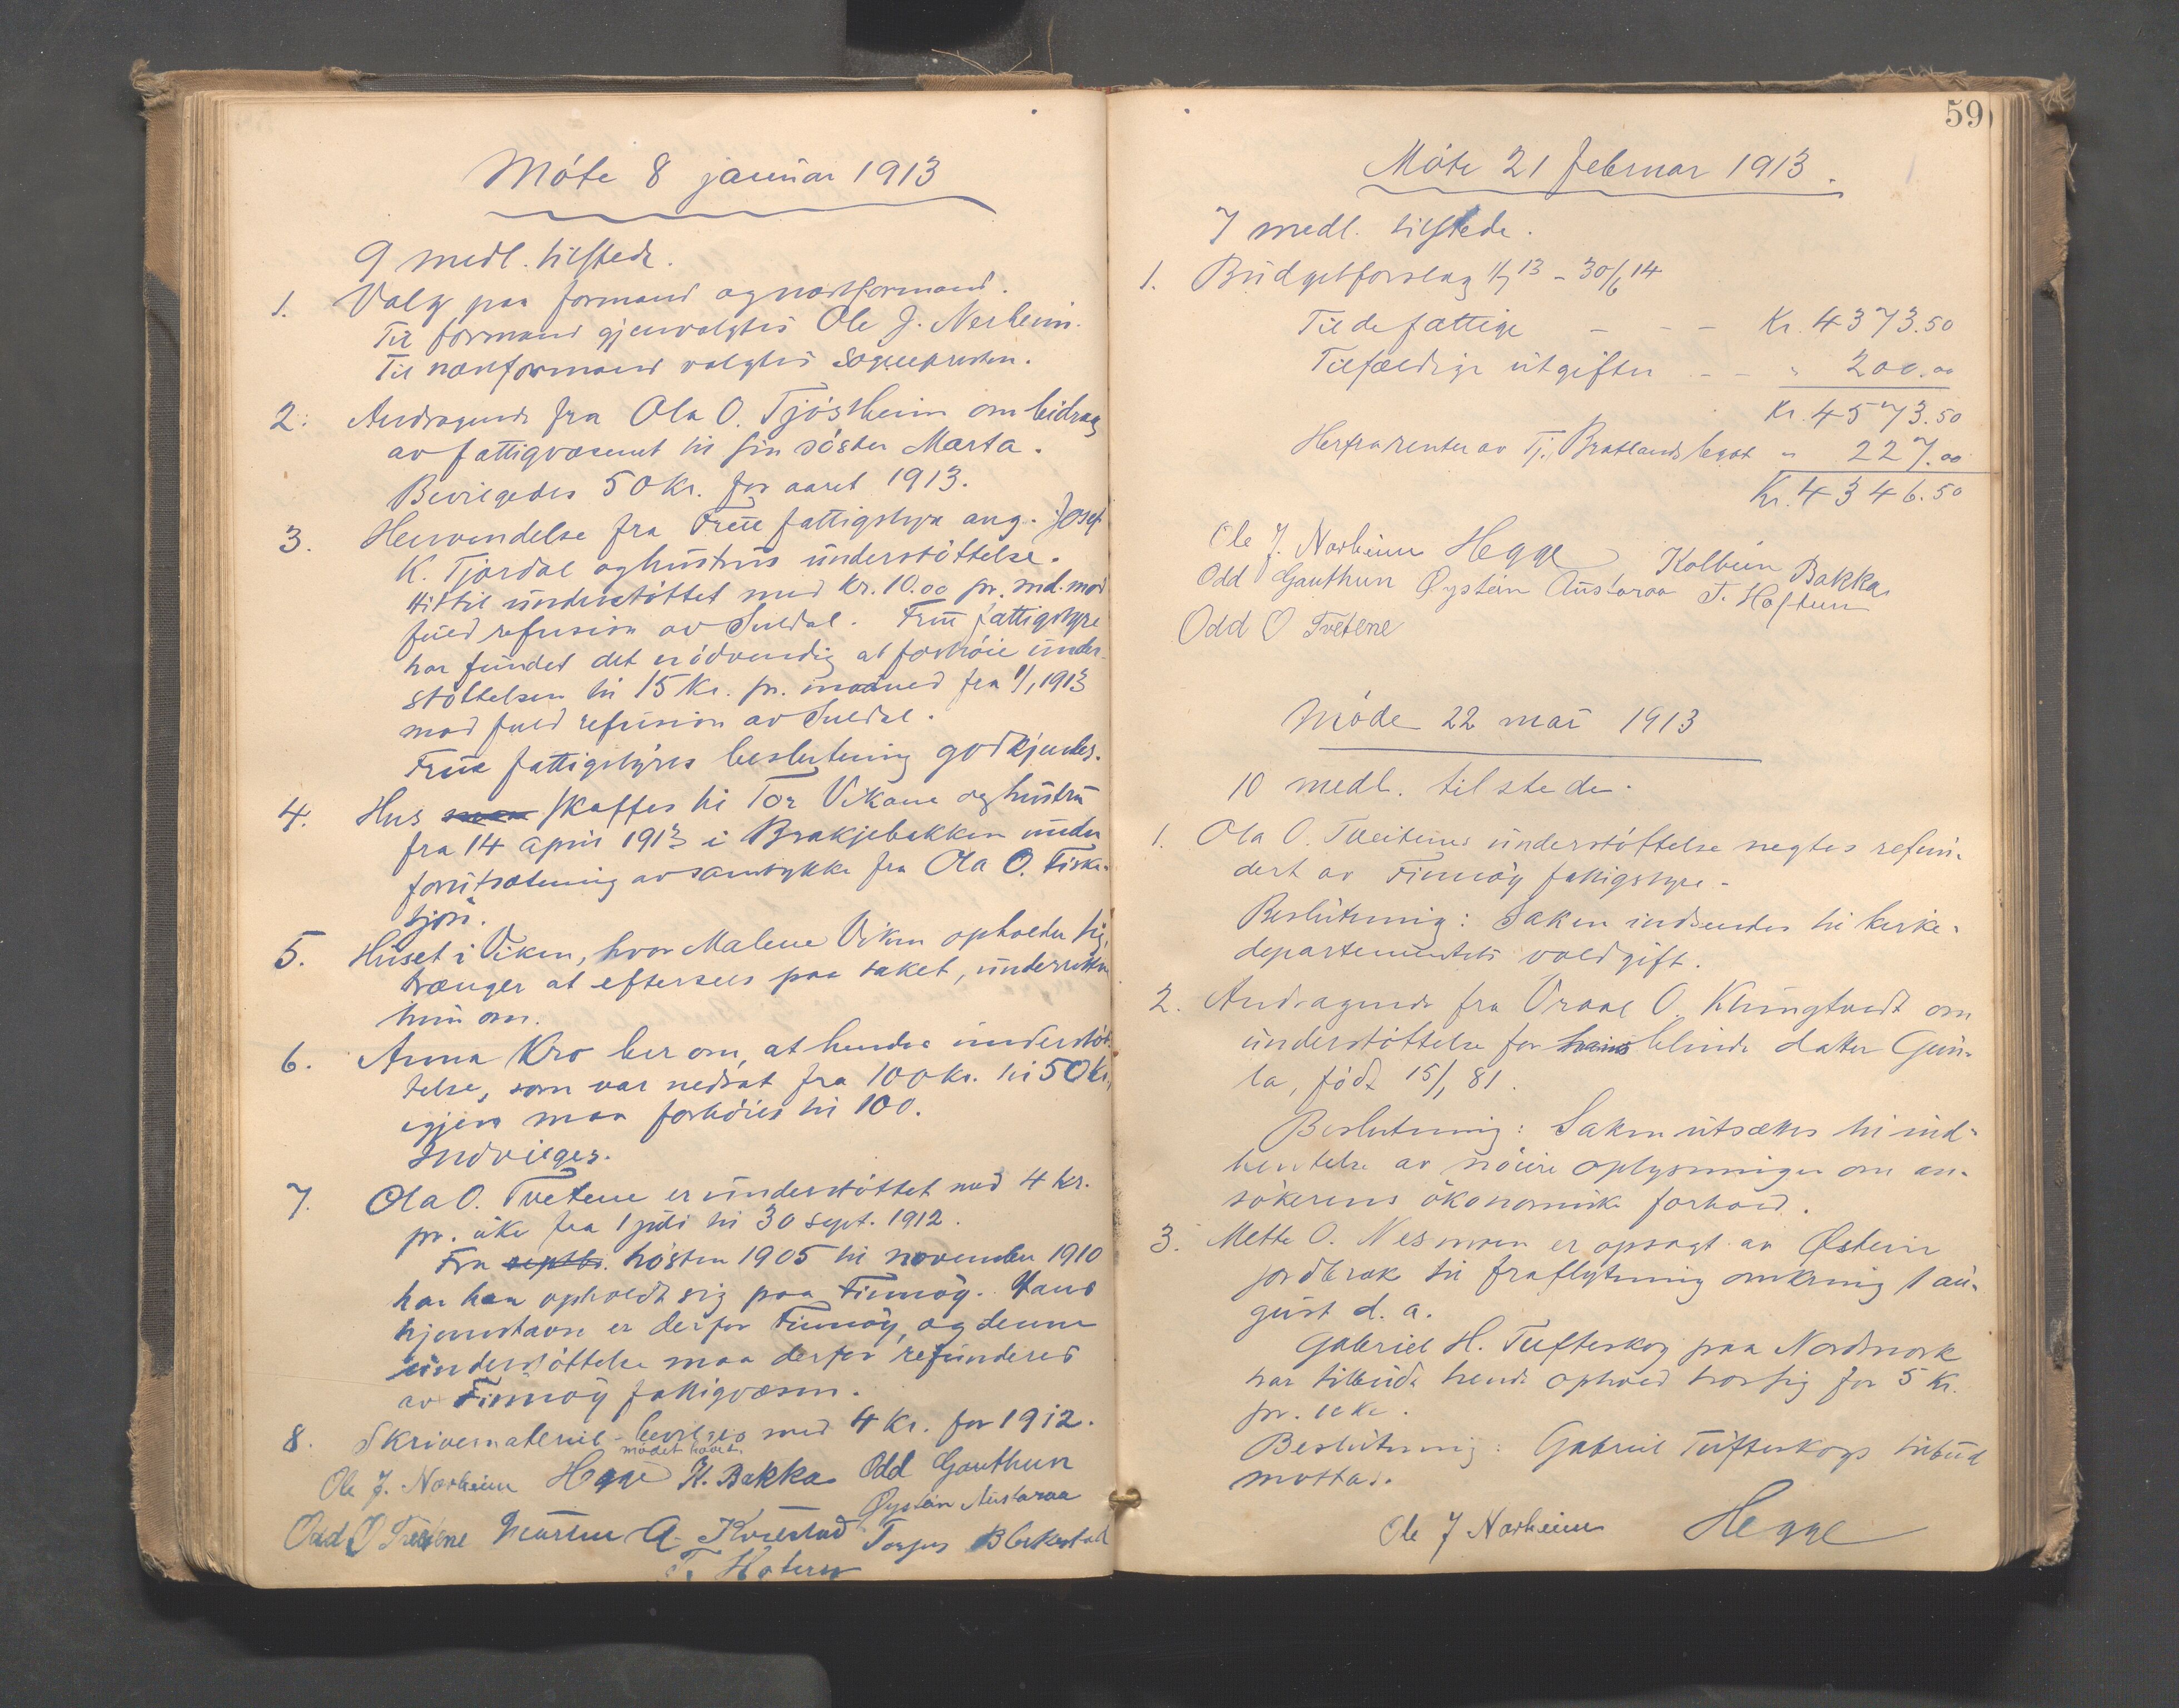 Møte 8 januar 1913
9 medl. tilstede.
1. Valg paa formand og næstformand.
Til formand gjenvalgtes Ole J. Nerheim.
Til næstformand valgtes sognepresten.
2. Andragende fra Ola O. Tjøstheim om bidrag
av fattigvæsenet til sin søster Marta.
Bevilgedes 50 kr. for aaret 1913.
3. Henvendelse fra Frue fattigstyre ang. Josef
K. Tjordal og hustrus understøttelse.
Hittil understøttet med kr. 10.00 pr. md. mod
fuld refusion av Suldal. Frue fattigstyre
har fundet det nødvendig at forhøie under-
støttelsen til 15 kr. pr. maaned fra 1/1 1913
mod fuld refusion av Suldal.
Frue fattigstyres beslutning godkjendes.
4. Hus skaffes til Tor Vikane og hustru
fra 14 april 1913 i Brakjebakken under
forutsætning av samtykke fra Ola O. Fiske-
tjøn.
5. Huset i Viken, hvor Malene Viken opholder sig,
trænger at eftersees paa taket, underretter
hun om.
6. Anna Kro ber om, at hendes understøt-
telse, som var nedsat fra 100 kr. til 50 kr,
igjen maa forhøies til 100.
Indvilges.
7. Ola O. Tvetene er understøttet med 4 kr.
pr. uke fra 1 juli til 30 sept. 1912.
Fra septbr. høsten 1905 til november 1910
har han opholdt sig paa Finnøy. Hans
hjemstavn er derfor Finnøy, og denne
understøttelse maa derfor refunderes
av Finnøy fattigvæsen.
8. Skrivemateriel bevilges med 4 kr. for 1912.
mødet hævet.
Ole J. Nærheim Hegge K. Bakka Odd Gauthun
Øystein Austaraa
Odd O Tvetene A. Kvelstad Torjus
T. Høfteren
59
Møte 21 februar 1913.
7 medl. tilstede.
1. Budgetforslag 1/7 13 - 30/6 14
Til de fattige - - - Kr. 4373.50
Tilfældige utgifter - - " 200.00
Kr. 4573.50
Herfra renter av Tj. Bratlands legat " 227.00
Kr. 4346.50
Ole J. Nærheim Hegge Kolbein Bakka
Odd Gauthun Øystein Austaraa T. Høfteren
Odd O Tvetene
Møde 22 mai 1913
10 medl. tilstede.
1. Ola O. Tveitenes understøttelse negtes refun-
dert av Finnøy fattigstyre.
Beslutning: Saken indsendes til kirke-
departementets voldgift.
2. Andragende fra Vraal O. Klungtvedt om
understøttelse for hans blinde datter Gun-
la, født 15/1 81.
Beslutning: Saken utsættes til ind-
hentelse av nøiere oplysninger om an-
søkerens økonomiske forhold.
3. Mette O. Nesmoen er opsagt av Østein
Jordbræk til fraflytning omkring 1 au-
gust d. a.
Gabriel H. Tufteskog paa Nordmork
har tilbudt hende ophold hos sig for 5 kr.
pr. uke.
Beslutning: Gabriel Tufteskogs tilbud
mottas.
Ole J Nærheim Hegge